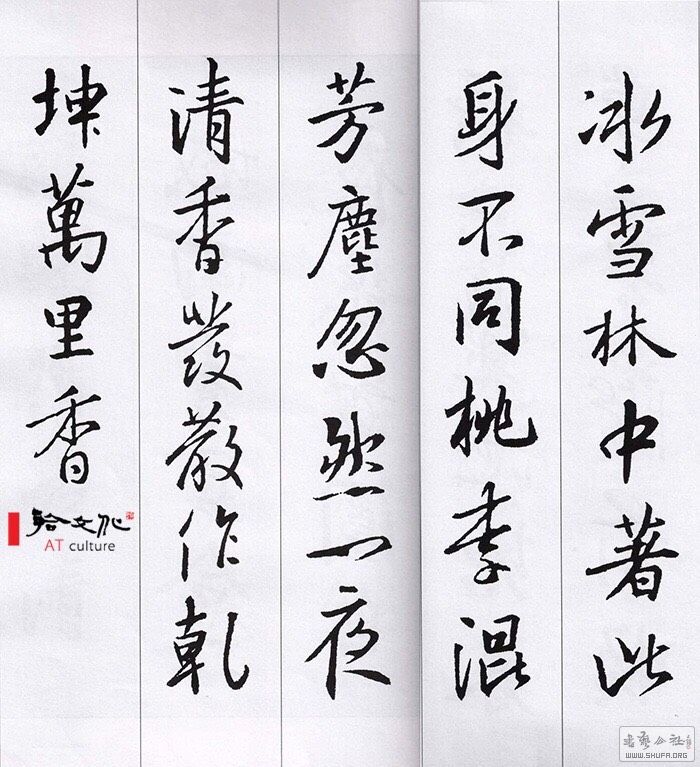 冰雪林中著此
身不同桃李混
芳塵忽然一夜
清香發散作乾
坤萬里香
文化
AT culture
書藝公社
WWW.SHUFA.ORG